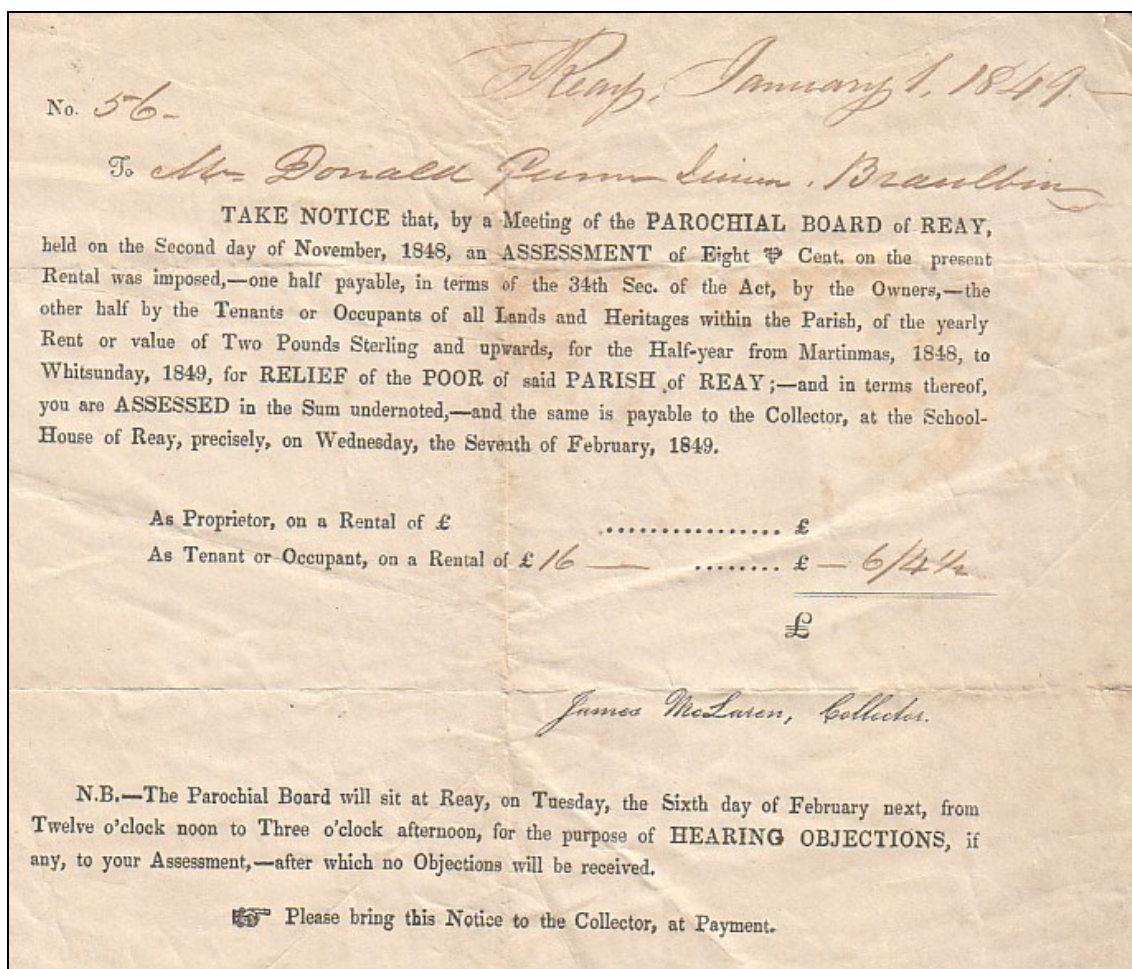 Reay, January 1, 1849.—
No. 56-
To Mr Donald Gunn Braulbin
TAKE NOTICE that, by a Meeting of the PAROCHIAL BOARD of REAY,
held on the Second day of November, 1848, an ASSESSMENT of Eight ⅌ Cent. on the present
Rental was imposed,—one half payable, in terms of the 34th Sec. of the Act, by the Owners,—the
other half by the Tenants or Occupants of all Lands and Heritages within the Parish, of the yearly
Rent or value of Two Pounds Sterling and upwards, for the Half-year from Martinmas, 1848, to
Whitsunday, 1849, for RELIEF of the POOR of said PARISH of REAY;—and in terms thereof,
you are ASSESSED in the Sum undernoted,—and the same is payable to the Collector, at the School-
House of Reay, precisely, on Wednesday, the Seventh of February, 1849.
As Proprietor, on a Rental of £ ................ £
As Tenant or Occupant, on a Rental of £ 16 — ........ £ — 6/4½
£
James McLaren, Collector.
N.B.—The Parochial Board will sit at Reay, on Tuesday, the Sixth day of February next, from
Twelve o'clock noon to Three o'clock afternoon, for the purpose of HEARING OBJECTIONS, if
any, to your Assessment,—after which no Objections will be received.
☞ Please bring this Notice to the Collector, at Payment.